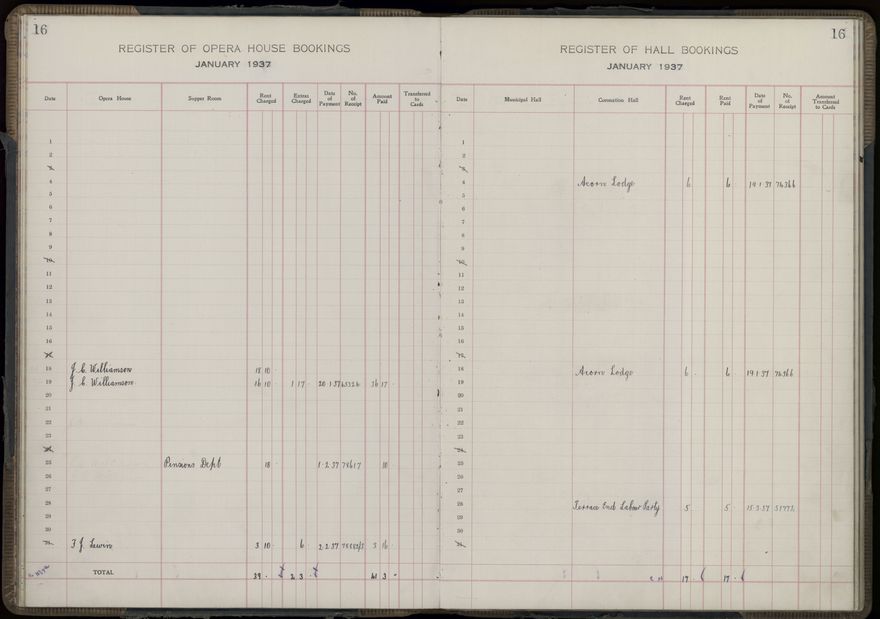 16
REGISTER OF OPERA HOUSE BOOKINGS
JANUARY 1937
Date Opera House Supper Room Rent Charged Extras Charged Date of Payment No. of Receipt Amount Paid Transferred to Cards
1
2
3
4
5
6
7
8
9
10
11
12
13
14
15
16
17
18 J. C. Williamson 18 10
19 J. C. Williamson 16 10 1 17 20 1 37 36 17
20
21
22
23
24
25 Pensions Dept 18 1 2 37 78617 10
26
27
28
29
30
31 3 10 6 2 2 37 3 16
TOTAL 39 2 3 41 3
16
REGISTER OF HALL BOOKINGS
JANUARY 1937
Date Municipal Hall Coronation Hall Rent Charged Rent Paid Date of Payment No. of Receipt Amount Transferred to Cards
1
2
3
4 Acorn Lodge 6 6 19 1 37 76366
5
6
7
8
9
10
11
12
13
14
15
16
17
18 Acorn Lodge 6 6 19 1 37 76366
19
20
21
22
23
24
25
26
27
28 Terrace End Labour Party 5 5 15 3 37
29
30
31
17 17